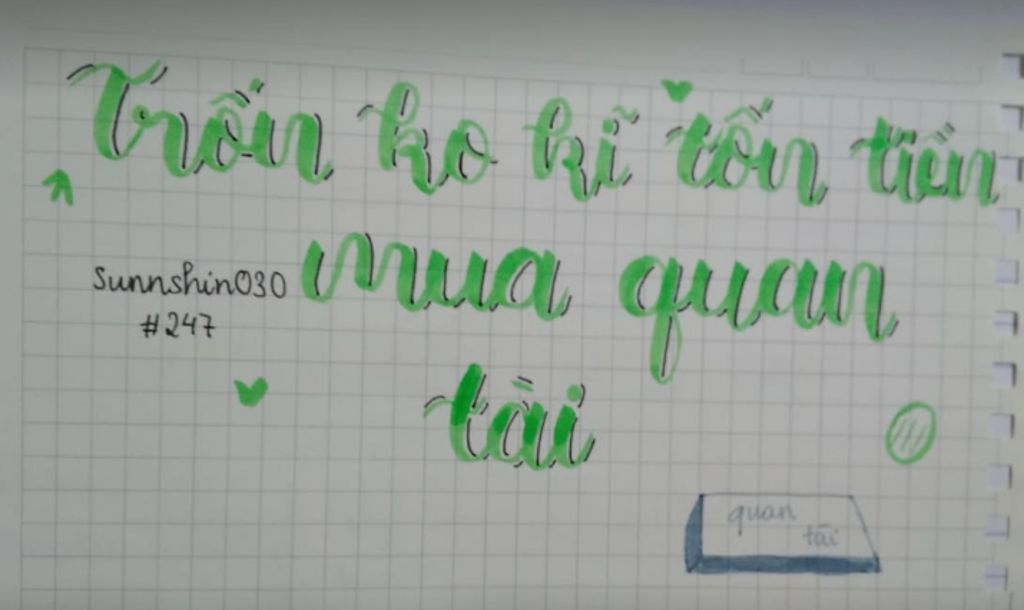 Trốn ko kĩ tốn tiền
mua quan
sunnshin030
#247
tài
quan
tài